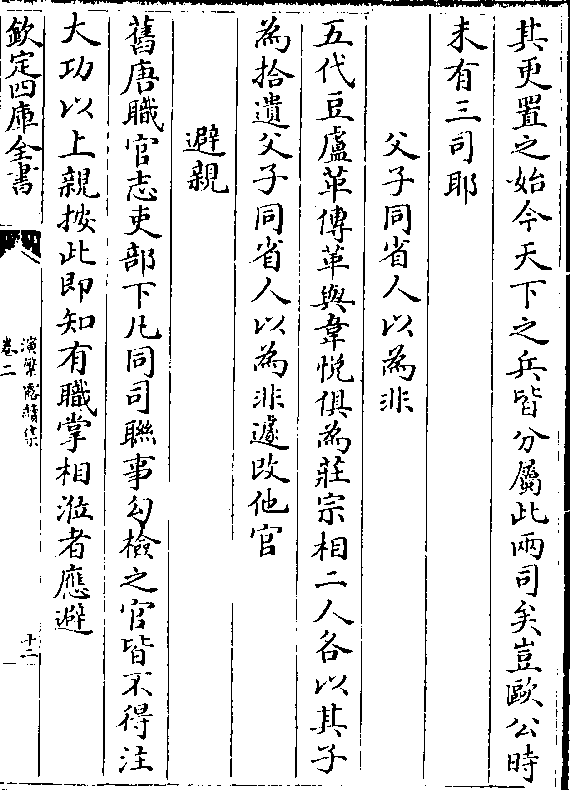 其更置之始今天下之兵皆分屬此兩司矣豈歐公時
未有三司耶
父子同省人以為非
五代豆盧革傳革與韋悅俱為莊宗相二人各以其子
為拾遺父子同省人以為非遽改他官
避親
舊唐職官志吏部下凡同司聯事勾檢之官皆不得注
大功以上親按此即知有職掌相涖者應避
欽定四庫全書
演繁露續集
卷二
十二